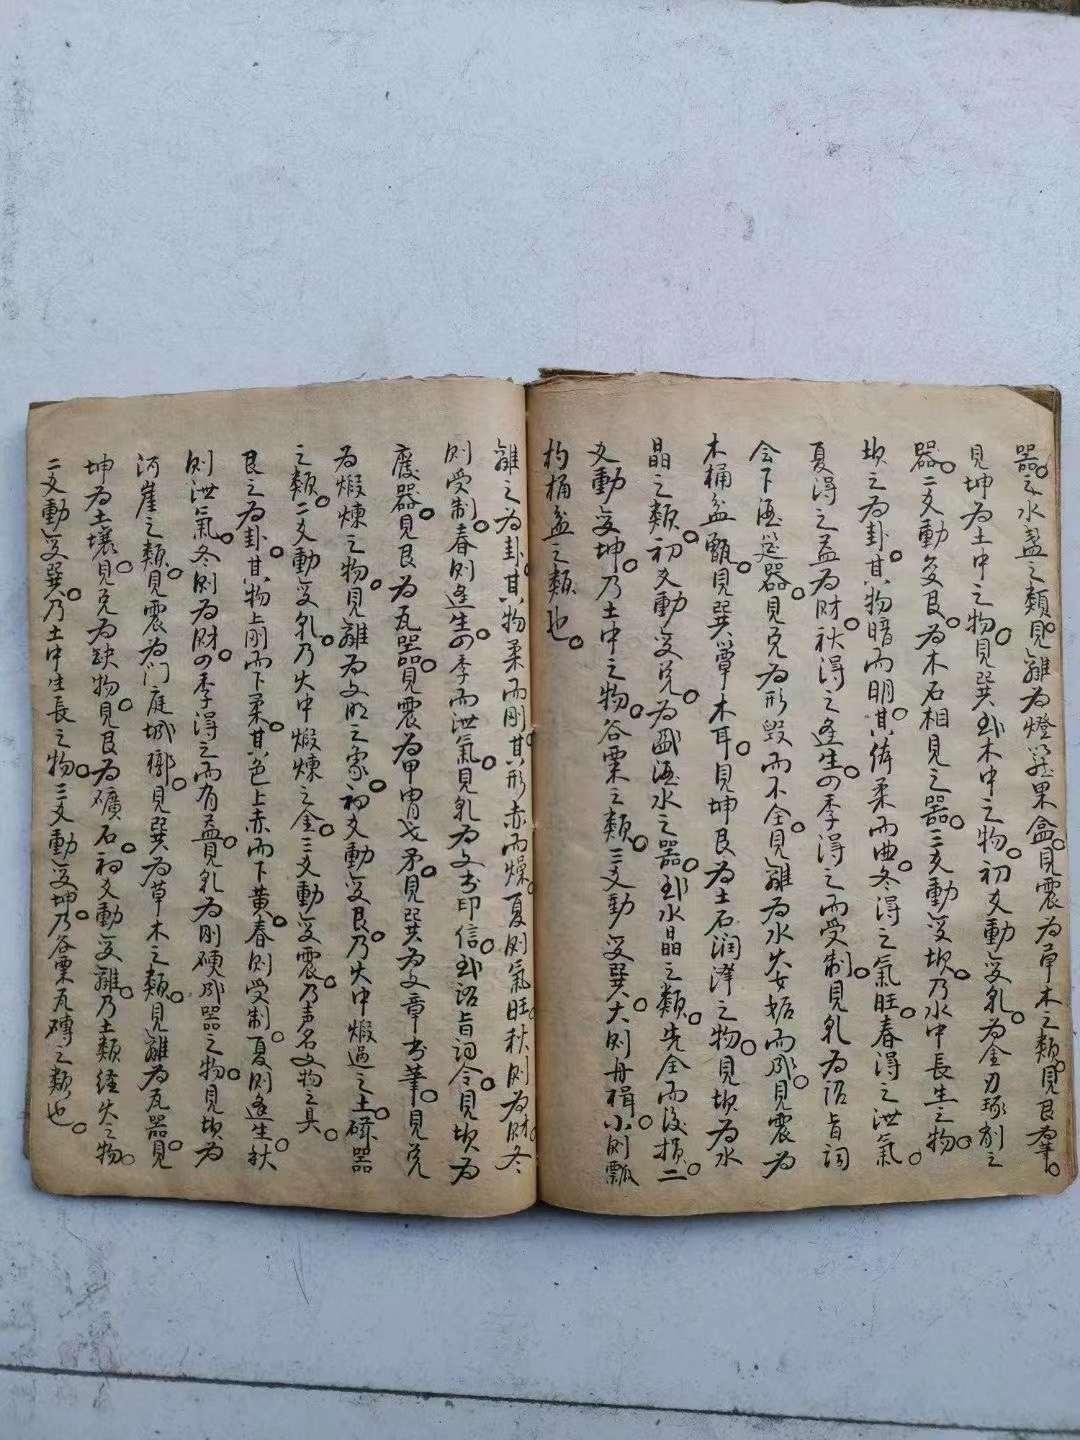 器。見水盂之類。見離為燈籠果盒。見震為草木之類。見艮為筆。
見坤為土中之物。見巽或木中之物。初爻動変乹。為金刀琢削之
器。二爻動変艮。為木石相見之器。三爻動変坎。乃水中長生之物。
坎之為卦。其物暗而明。其体柔而曲。冬得之氣旺。春得之泄氣。
夏得之益為財。秋得之逢生。四季得之而受制。見乹為詔旨詞
今下酒筵器。見兌為形毀而不全。見離為水火女妬而成。見震為
木桶盆甑。見巽簞木耳。見坤艮為土石润泽之物。見坎為水
晶之類。初爻動変兌。為盛酒水之器。或水晶之類。先全而後損。二
爻動変坤。乃土中之物。谷栗之類。三爻動変巽。大則舟楫。小則瓢
杓桶盆之類也。
離之為卦。其物柔而剛。其形赤而燥。夏則氣旺。秋則為財。冬
則受制。春則逢生。四季而泄氣。見乹為文书印信。或詔旨詞令。見坎為
廢器。見艮為瓦器。見震為甲胄戈矛。見巽為文章书筆。見兌
為煅煉之物。見離為文明之象。初爻動変艮。乃火中煅過之土磁器
之類。二爻動変乹。乃火中煅煉之金。三爻動変震。乃声名文物之具。
艮之為卦。其物上剛而下柔。其色上赤而下黄。春則受制。夏則逢生。秋
則泄氣。冬則為財。四季得之而有益。見乹為剛硬成器之物。見坎為
河崖之類。見震為门庭城郭。見巽為草木之類。見離為瓦器。見
坤為土壤。見兌為缺物。見艮為礦石。初爻動変離。乃土類経火之物。
二爻動変巽。乃土中生長之物。三爻動変坤。乃谷栗瓦磚之類也。